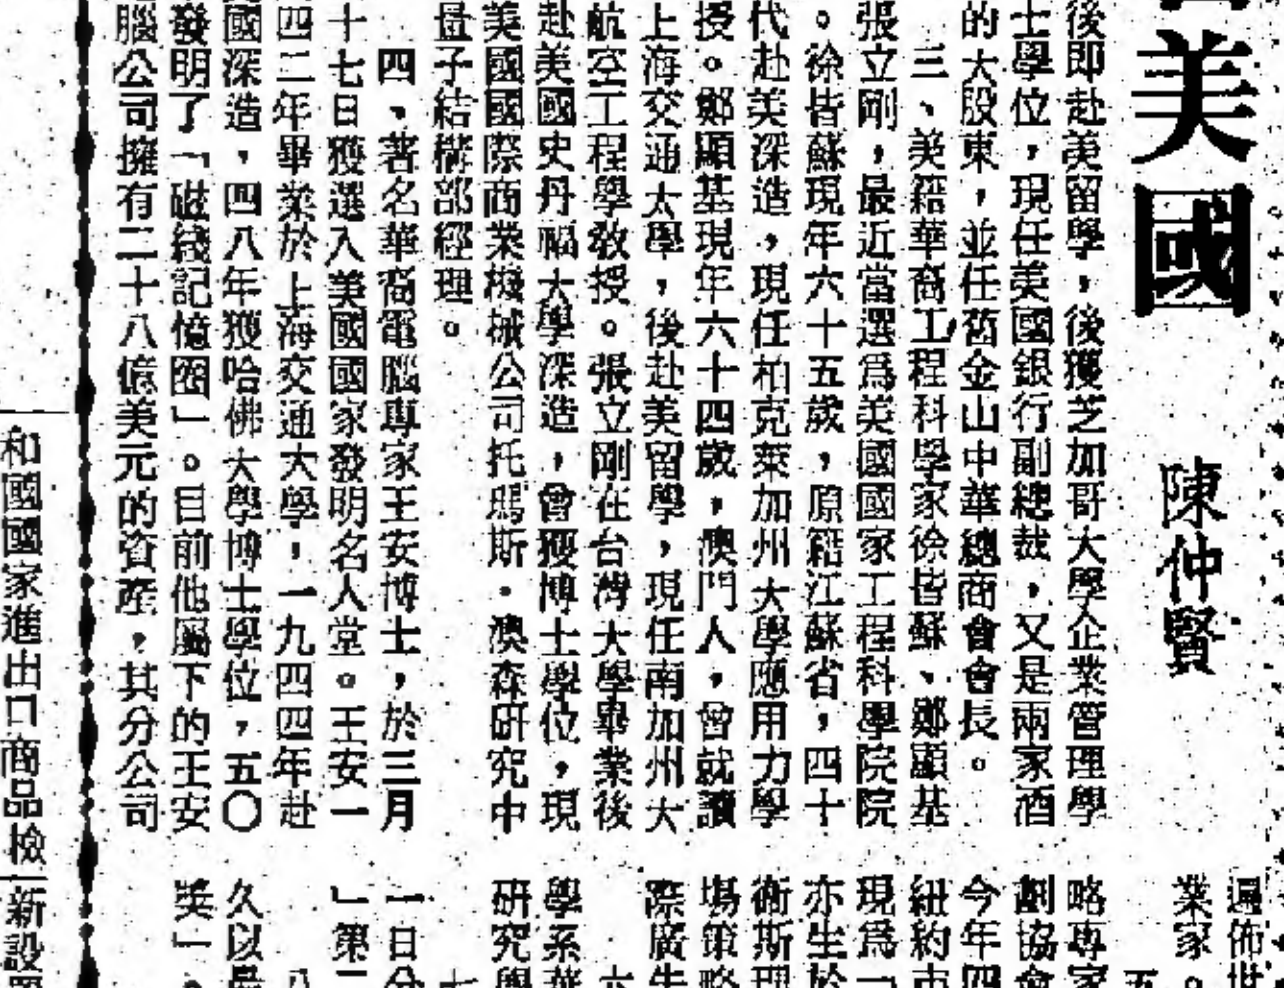 美國
陳仲賢
後即赴美留學，後獲芝加哥大學企業管理學
士學位，現任美國銀行副總裁，又是兩家酒
的大股東，並任舊金山中華總商會會長。
三、美籍華裔工程科學家徐皆蘇、鄭顯基
張立剛，最近當選爲美國國家工程科學院院
。徐皆蘇現年六十五歲，原籍江蘇省，四十
代赴美深造，現任柏克萊加州大學應用力學
授。鄭顯基現年六十四歲，澳門人，曾就讀
上海交通大學，後赴美留學，現任南加州大
航空工程學教授。張立剛在台灣大學畢業後
赴美國史丹福大學深造，曾獲博士學位，現
美國國際商業機械公司托瑪斯·澳森研究中
量子結構部經理。
四、著名華裔電腦專家王安博士，於三月
十七日獲選入美國國家發明名人堂。王安一
四二年畢業於上海交通大學，一九四四年赴
國深造，四八年獲哈佛大學博士學位，五〇
發明了「磁綫記憶圈」。目前他屬下的王安
腦公司擁有二十八億美元的資產，其分公司
遍佈世
業家。
五
略專家
劃協會
今年四
紐約市
現爲「
亦生於
衛斯理
場策略
際廣告
六
學系華
研究學
七
一日分
」第二
八
久以最
獎」。
和國國家進出口商品檢
新設